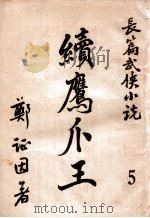 長篇武俠小說
續鷹爪王
鄭証因著
5